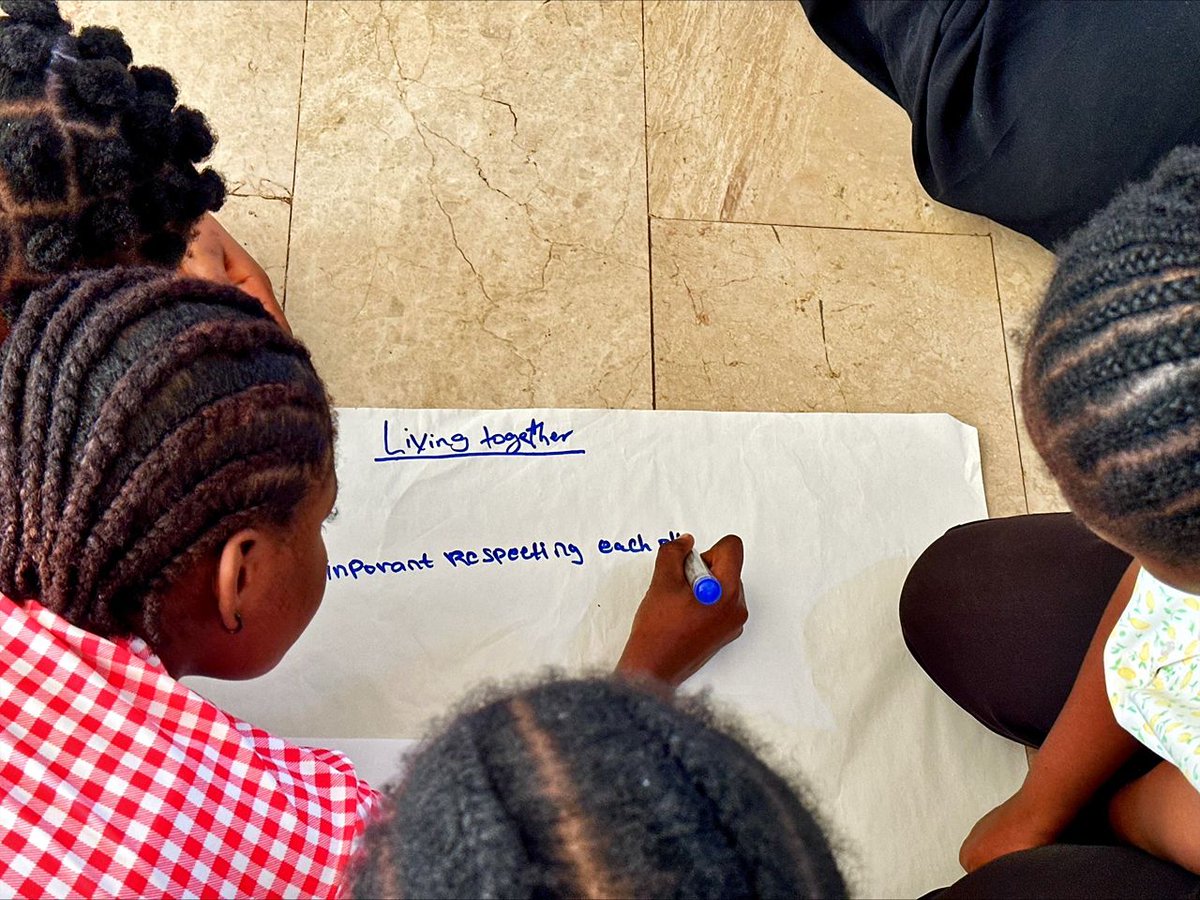 Living together
inporant Respecting each